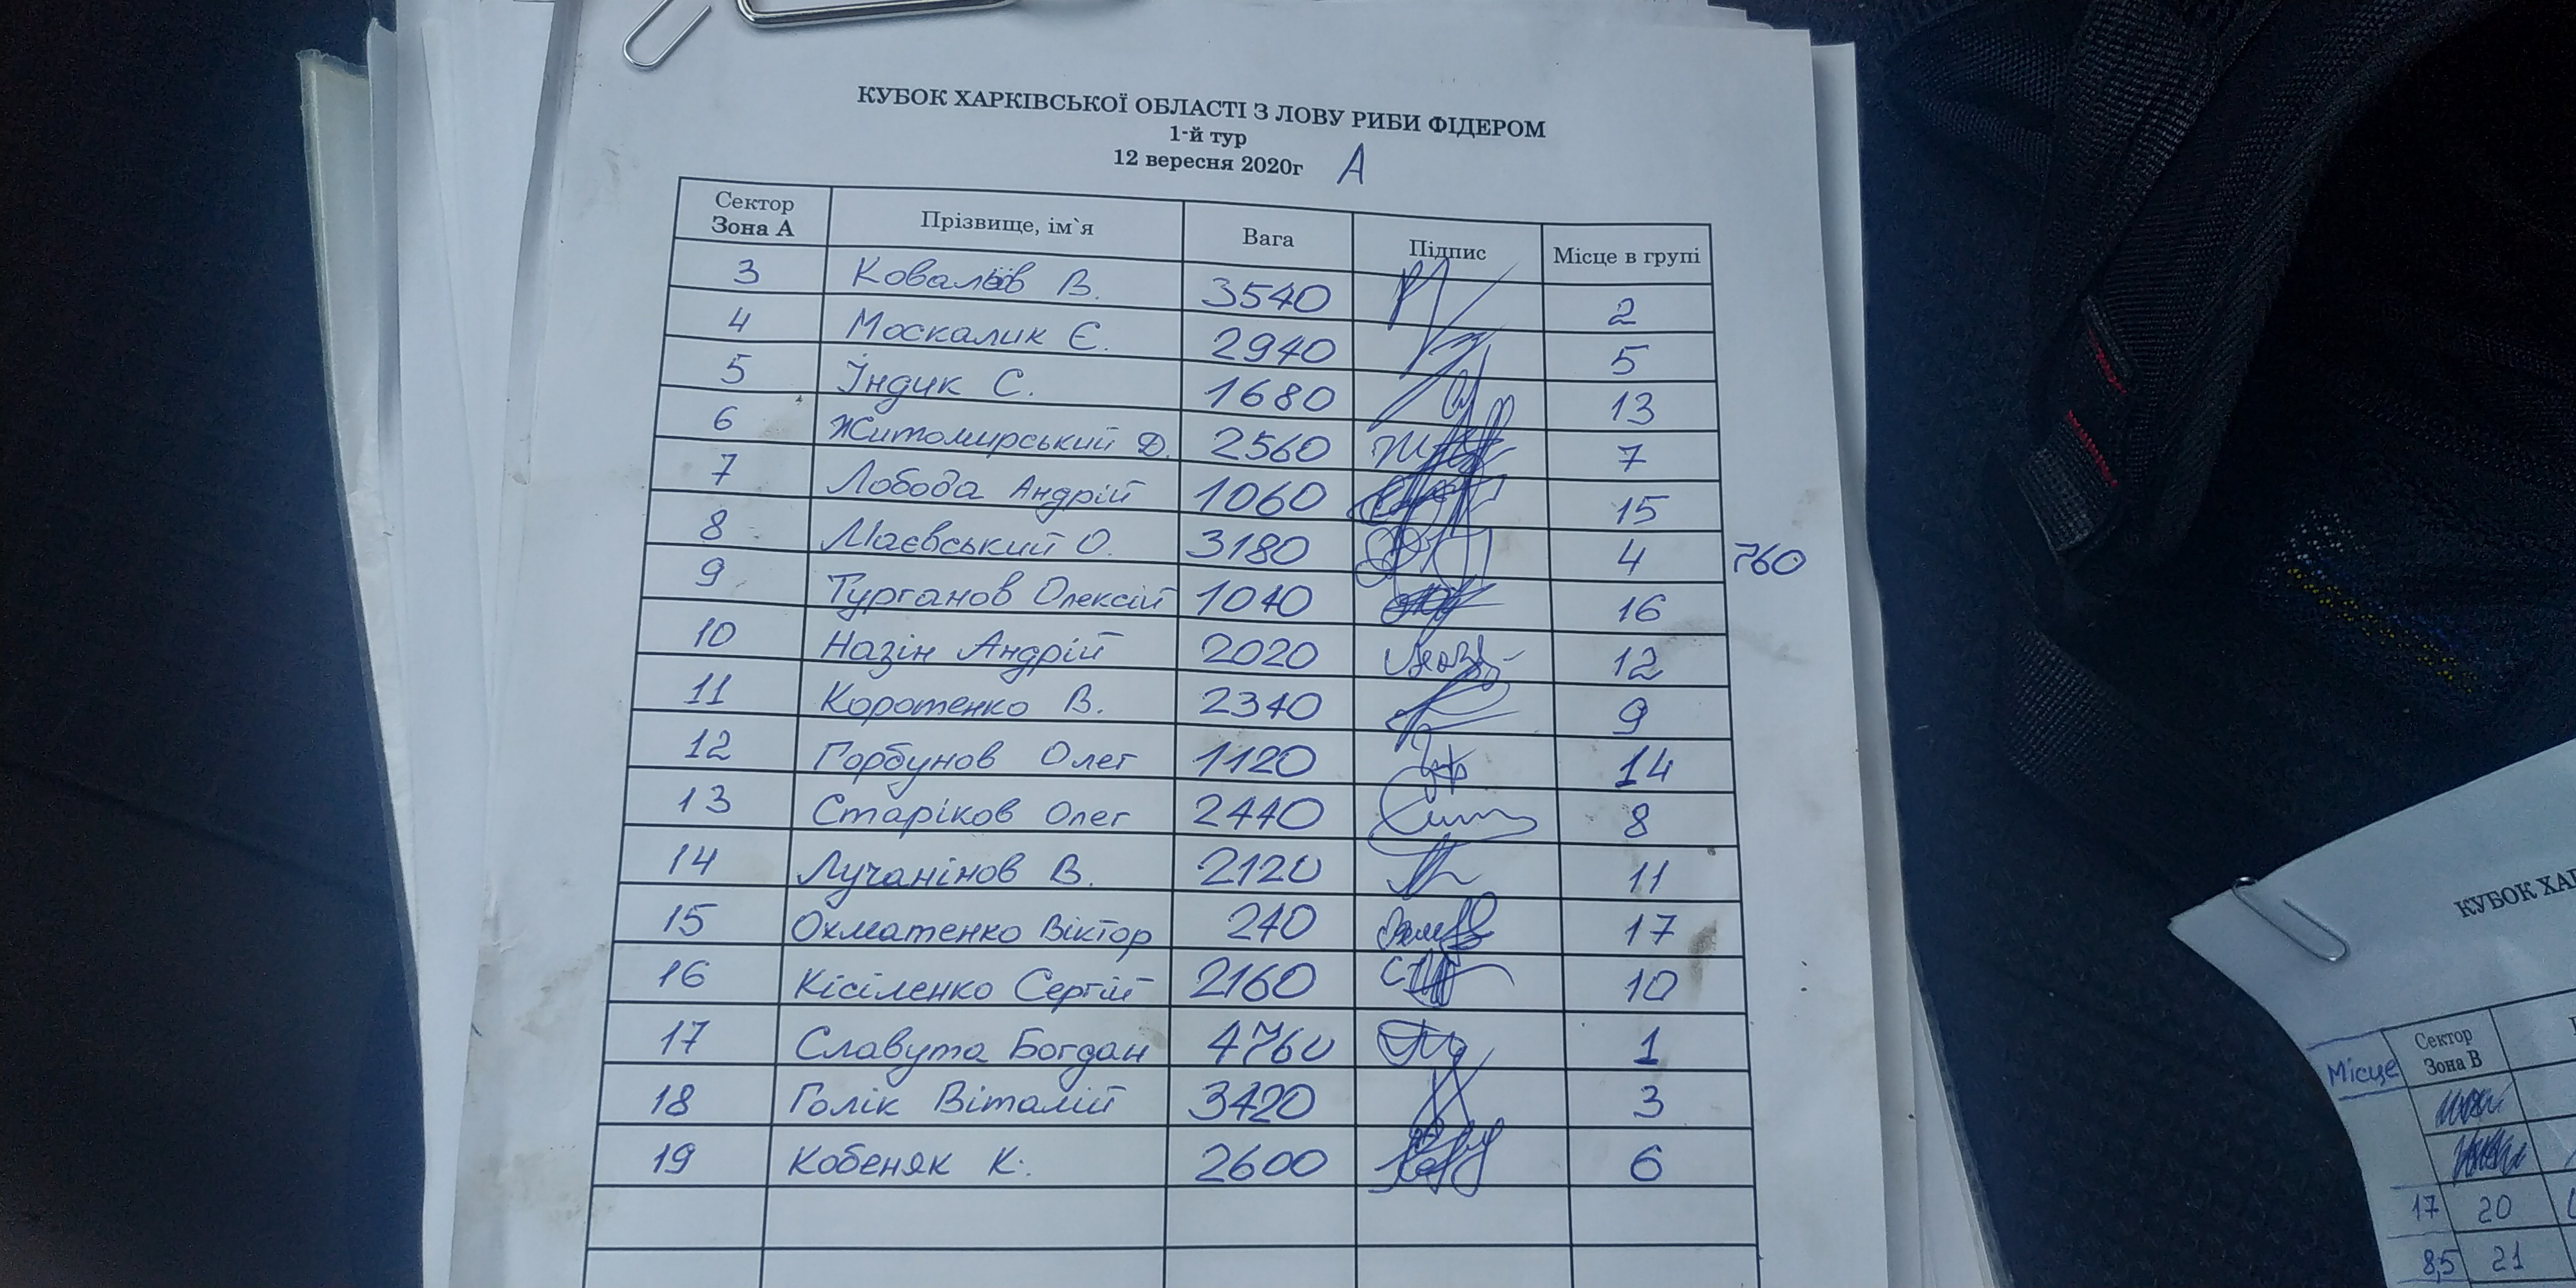 КУБОК ХАРКІВСЬКОЇ ОБЛАСТІ З ЛОВУ РИБИ ФІДЕРОМ
1-й тур
12 вересня 2020г А
Сектор Зона А Прізвище, ім`я Вага Підпис Місце в групі
3 Ковальов В. 3540 2
4 Москалик Є. 2940 5
5 Індик С. 1680 13
6 Житомирський Д. 2560 7
7 Лобода Андрій 1060 15
8 Маєвський О. 3180 4 760
9 Турганов Олексій 1040 16
10 Назін Андрій 2020 12
11 Коротенко В. 2340 9
12 Горбунов Олег 1120 14
13 Старіков Олег 2440 8
14 Лучанінов В. 2120 11
15 Охматенко Віктор 240 17
16 Кісіленко Сергій 2160 10
17 Славута Богдан 4760 1
18 Голік Віталій 3420 3
19 Кобеняк К. 2600 6
КУБОК
Місце Сектор Зона В
17 20
8,5 21